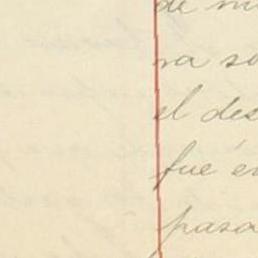 de
ra so
el des
fue e
pasa